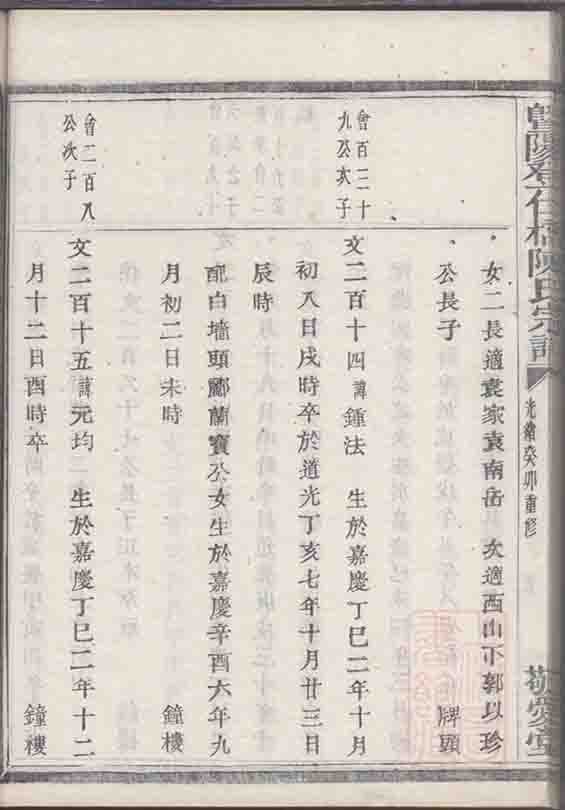 暨陽孝仁橋陳氏宗譜
光緒癸卯重修
敬愛堂
女二長適袁家袁南岳 次適西山下郭以珍
公長子 牌頭
會百三十
九公次子
文二百十四諱鍾法 生於嘉慶丁巳二年十月
初八日戌時卒於道光丁亥七年十月廿三日
辰時
配白墻頭酈蘭寶公女生於嘉慶辛酉六年九
月初二日未時 鐘樓
會二百八
公次子
文二百十五諱元均 生於嘉慶丁巳二年十二
月十二日酉時卒 鐘樓